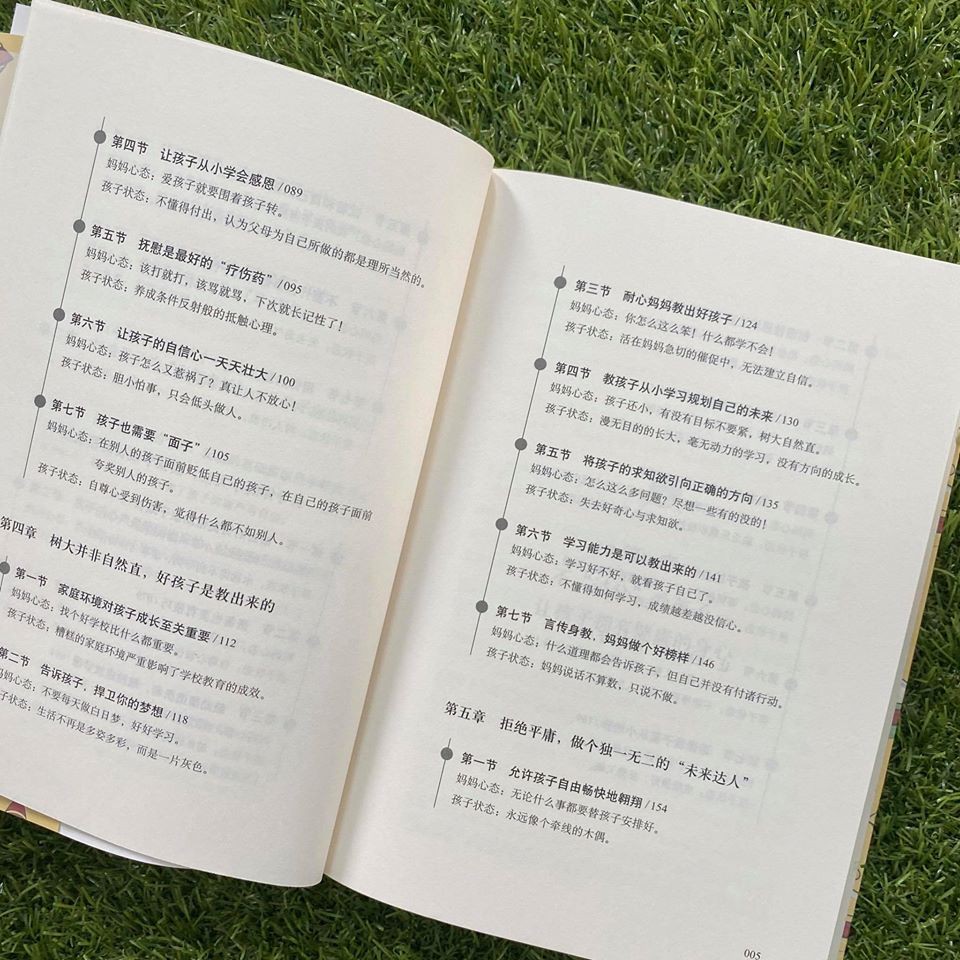 第四节 让孩子从小学会感恩 / 089
妈妈心态：爱孩子就要围着孩子转。
孩子状态：不懂得付出，认为父母为自己所做的都是理所当然的。
第五节 抚慰是最好的“疗伤药” / 095
妈妈心态：该打就打，该骂就骂，下次就长记性了！
孩子状态：养成条件反射般的抵触心理。
第六节 让孩子的自信心一天天壮大 / 100
妈妈心态：孩子怎么又惹祸了？真让人不放心！
孩子状态：胆小怕事，只会低头做人。
第七节 孩子也需要“面子” / 105
妈妈心态：在别人的孩子面前贬低自己的孩子，在自己的孩子面前
夸奖别人的孩子。
孩子状态：自尊心受到伤害，觉得什么都不如别人。
第四章 树大并非自然直，好孩子是教出来的
第一节 家庭环境对孩子成长至关重要 / 112
妈妈心态：找个好学校比什么都重要。
孩子状态：糟糕的家庭环境严重影响了学校教育的成效。
第二节 告诉孩子，捍卫你的梦想 / 118
妈妈心态：不要每天做白日梦，好好学习。
子状态：生活不再是多姿多彩，而是一片灰色。
第三节 耐心妈妈教出好孩子 / 124
妈妈心态：你怎么这么笨！什么都学不会！
孩子状态：活在妈妈急切的催促中，无法建立自信。
第四节 教孩子从小学习规划自己的未来 / 130
妈妈心态：孩子还小，有没有目标不要紧，树大自然直。
孩子状态：漫无目的的长大，毫无动力的学习，没有方向的成长。
第五节 将孩子的求知欲引向正确的方向 / 135
妈妈心态：怎么这么多问题？尽想一些有的没的！
孩子状态：失去好奇心与求知欲。
第六节 学习能力是可以教出来的 / 141
妈妈心态：学习好不好，就看孩子自己了。
孩子状态：不懂得如何学习，成绩越差越没信心。
第七节 言传身教，妈妈做个好榜样 / 146
妈妈心态：什么道理都会告诉孩子，但自己并没有付诸行动。
孩子状态：妈妈说话不算数，只说不做。
第五章 拒绝平庸，做个独一无二的“未来达人”
第一节 允许孩子自由畅快地翱翔 / 154
妈妈心态：无论什么事都要替孩子安排好。
孩子状态：永远像个牵线的木偶。
005